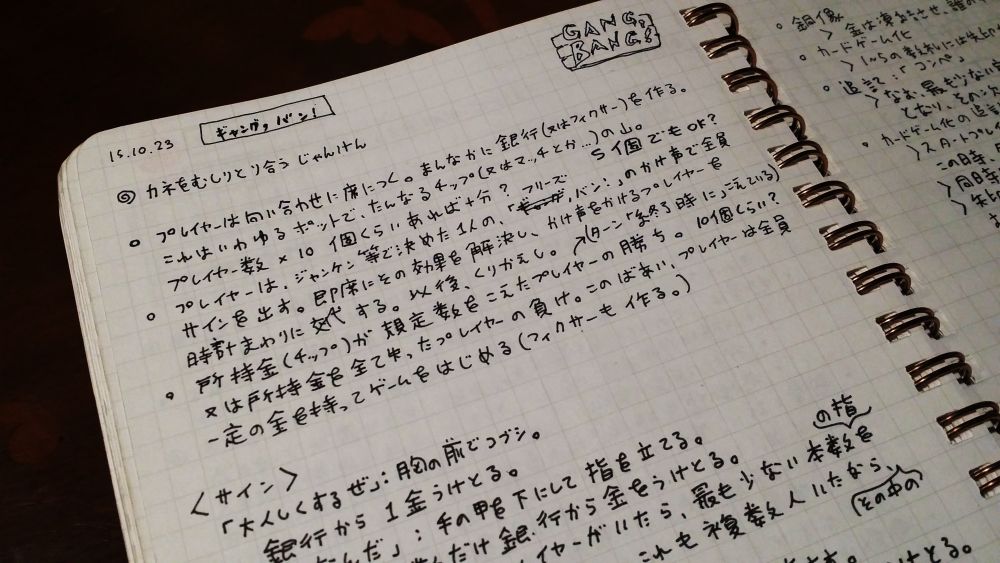 GANG,
BANG!
ギャング, バン!
15.10.23
◎ カネをむしりとり合う じゃんけん
○ プレイヤーは向い合わせに席につく。まんなかに銀行(又はフィクサー)を作る。
これはいわゆるポットで、たんなるチップ(又はマッチとか…)の山。
プレイヤー数 × 10 個くらいあれば十分? 5個でもOK?
○ プレイヤーは、ジャンケン等で決めた1人の、「フリーズ, バン!」のかけ声で全員
サインを出す。即席にその効果を解決し、かけ声をかけるプレイヤーを
時計まわりに交代する。以後、くりかえし。
(ターン「終了時に」こえている)
○ 所持金(チップ)が規定数をこえたプレイヤーの勝ち。10個くらい?
又は所持金を全て失ったプレイヤーの負け。このばあい、プレイヤーは全員
一定の金を持ってゲームをはじめる(フィクサーも作る。)
〈サイン〉
「大人しくするぜ」: 胸の前でコブシ。
銀行から1金うけとる。
んだ」: 手の甲を下にして指を立てる。
んだけ銀行から金をうけとる。
イヤーがいたら、最も少ない本数を
の指
これも複数人いたなら、
(その中の
○ 銅像
○ カードゲーム化
○ 追記:「コンペ」
> なお、最も少ない
○ カードゲーム化の追記
この時、
> 同時